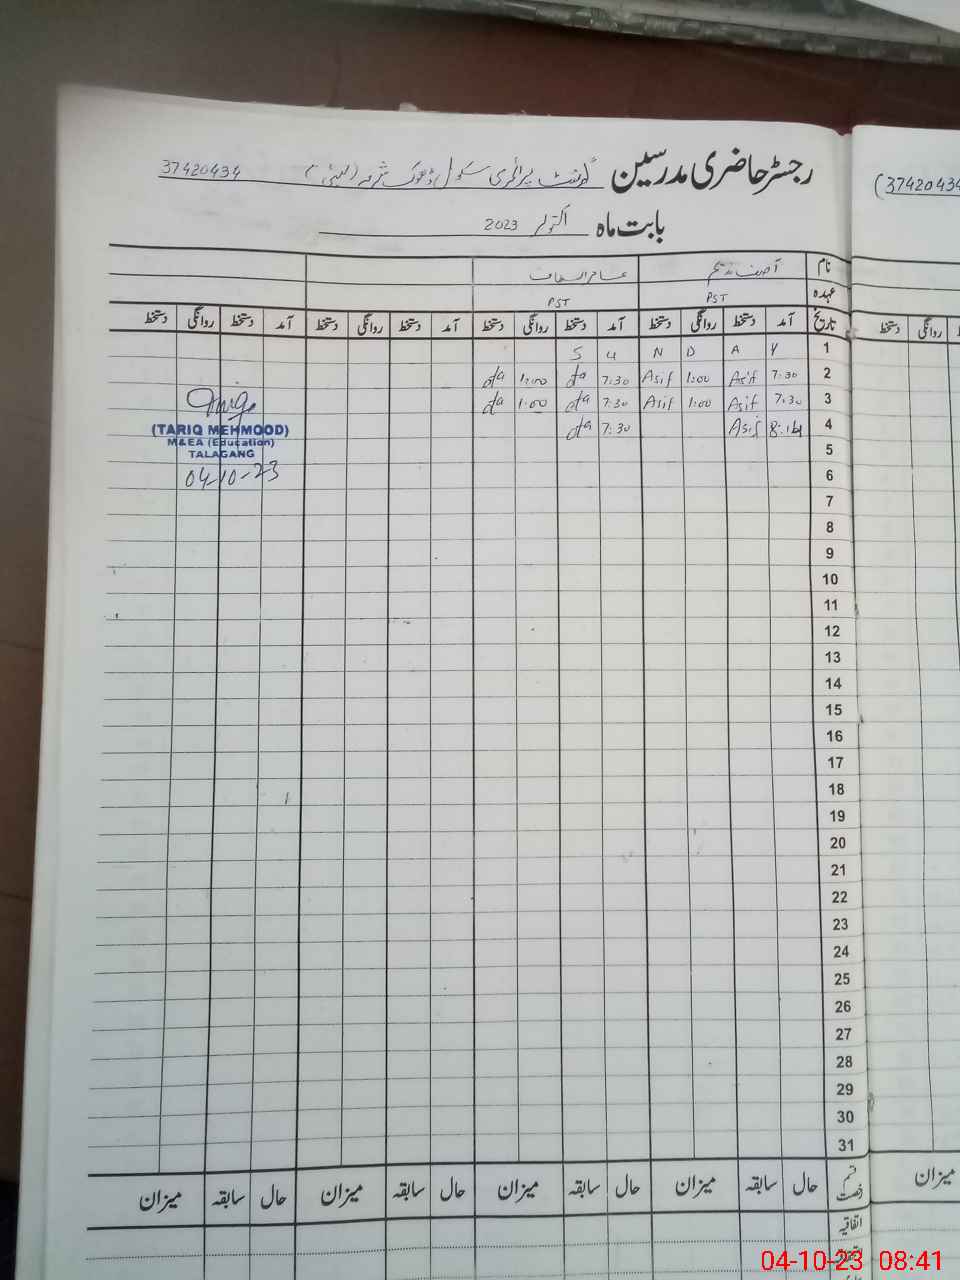 رجسٹر حاضری مدرسین گورنمنٹ پرائمری سکول ڈھوک 37420434
(37420434
بابت ماہ اکتوبر 2023
نام آصف ندیم
عہدہ PST PST
تاریخ آمد دستخط روانگی دستخط آمد دستخط روانگی دستخط آمد دستخط روانگی دستخط آمد دستخط روانگی دستخط
روانگی دستخط
1 Y A D N U S
2 7:30 Asif 1:00 Asif 7:30 1:00
3 7:30 Asif 1:00 Asif 7:30 1:00
4 8:14 Asif 7:30
(TARIQ MEHMOOD)
M&EA (Education)
TALAGANG
04-10-23
5
6
7
8
9
10
11
12
13
14
15
16
17
18
19
20
21
22
23
24
25
26
27
28
29
30
31
قسم رخصت حال سابقہ میزان حال سابقہ میزان حال سابقہ میزان حال سابقہ میزان
میزان
اتفاقیہ
04-10-23 08:41